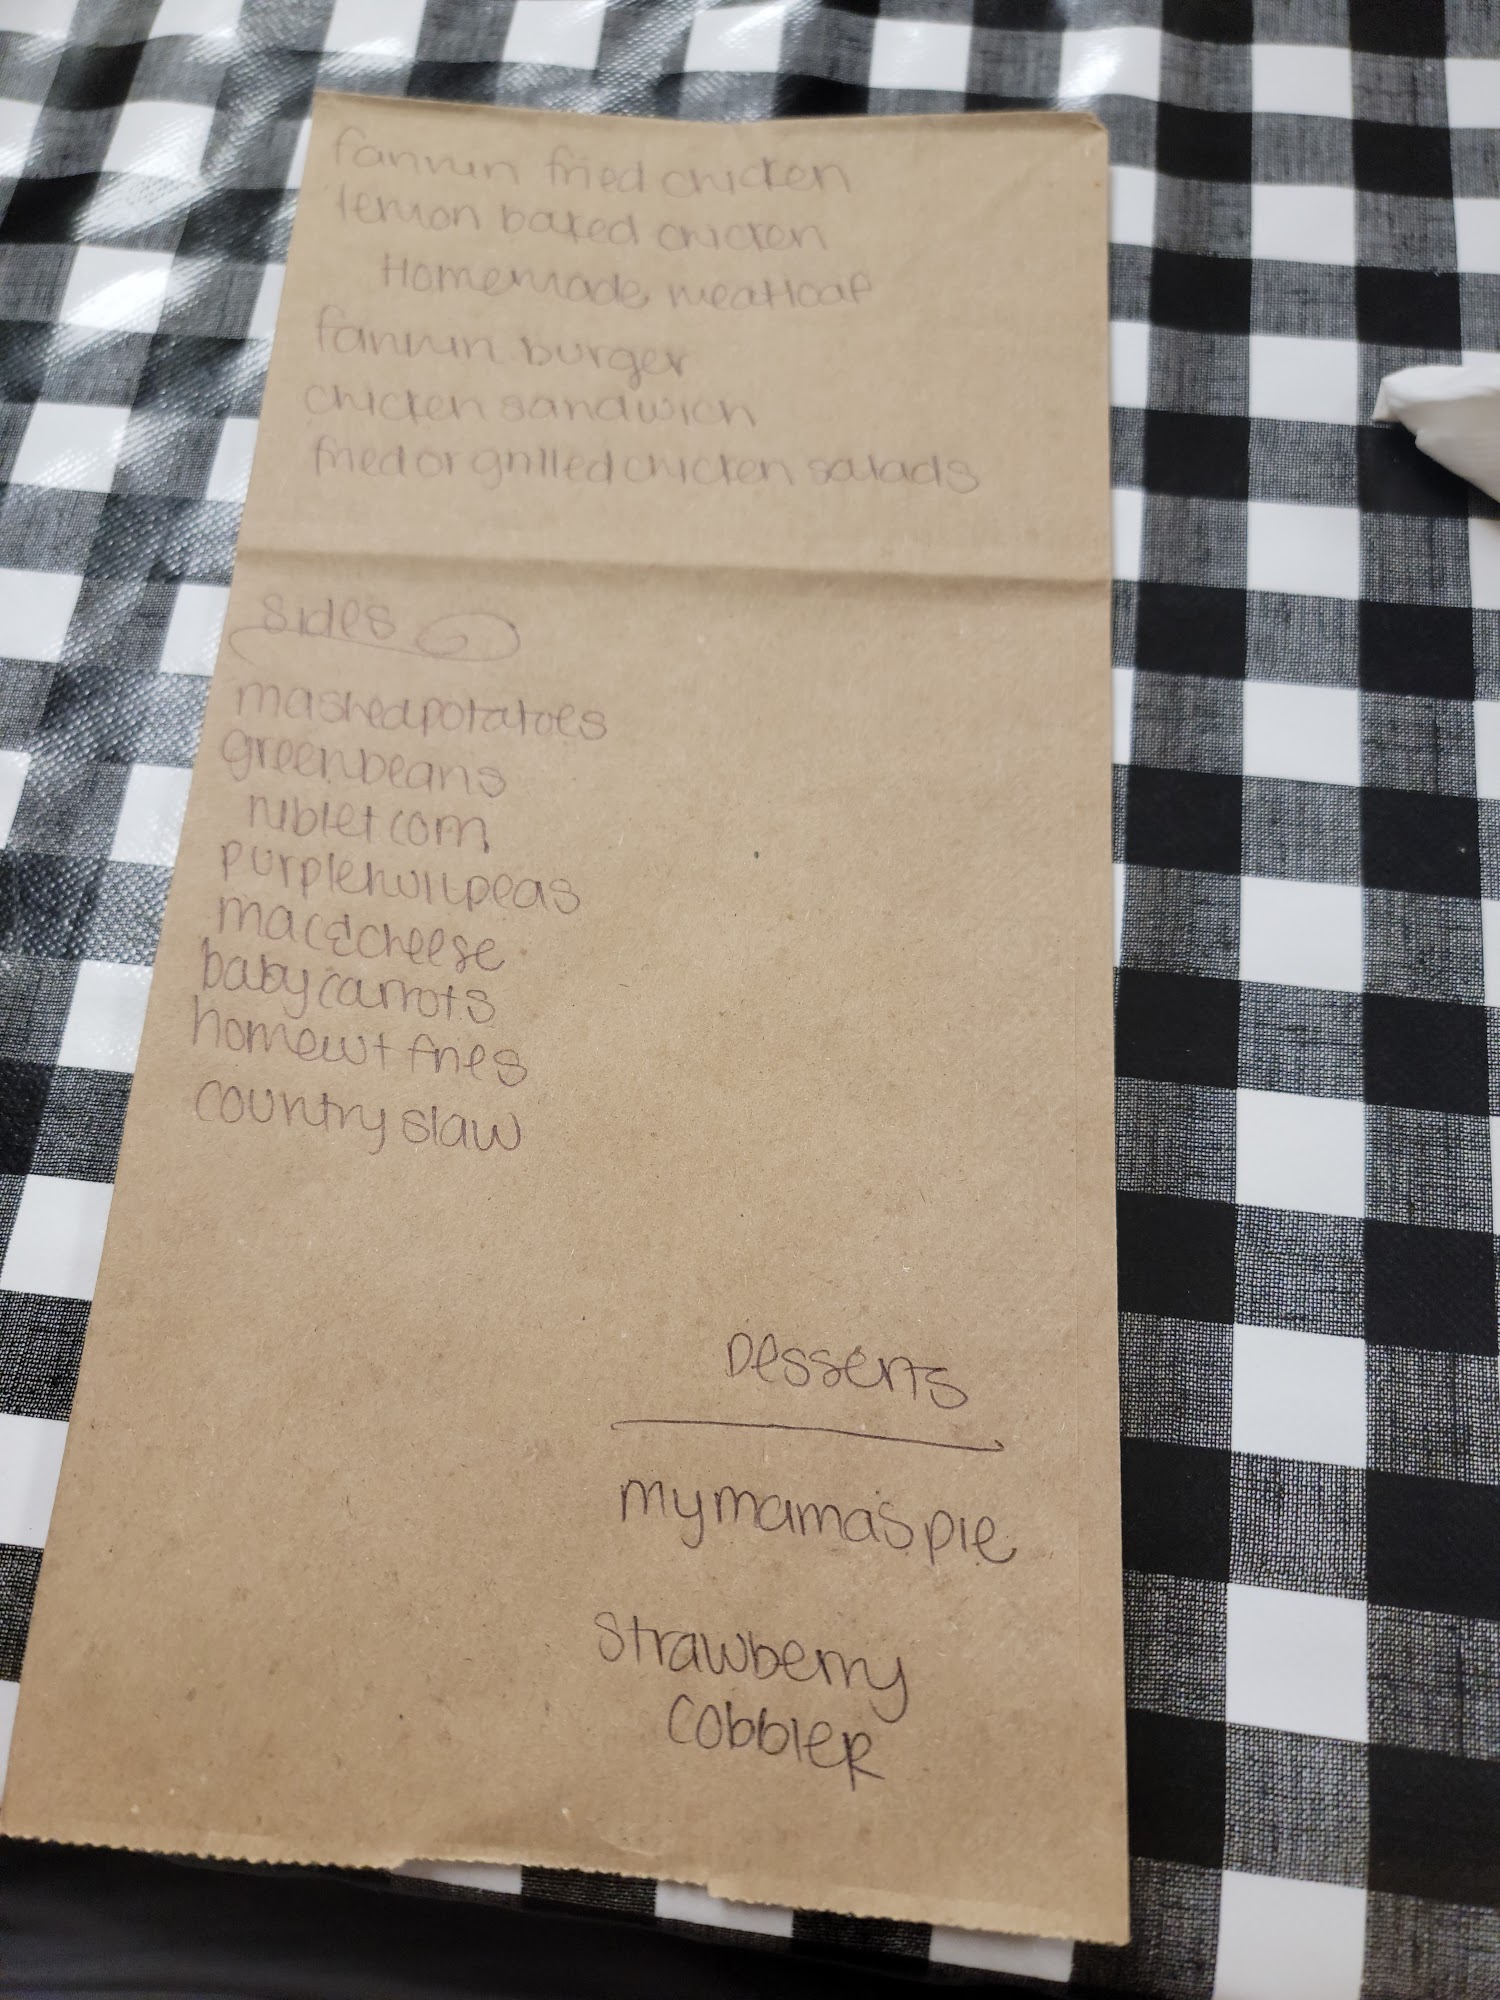 fannin fried chicken
lemon baked chicken
Homemade meatloaf
fannin burger
chicken sandwich
fried or grilled chicken salads
sides
mashed potatoes
green beans
niblet corn
purple hull peas
mac & cheese
baby carrots
homewt fries
country slaw
Desserts
my mama's pie
Strawberry
CobbleR